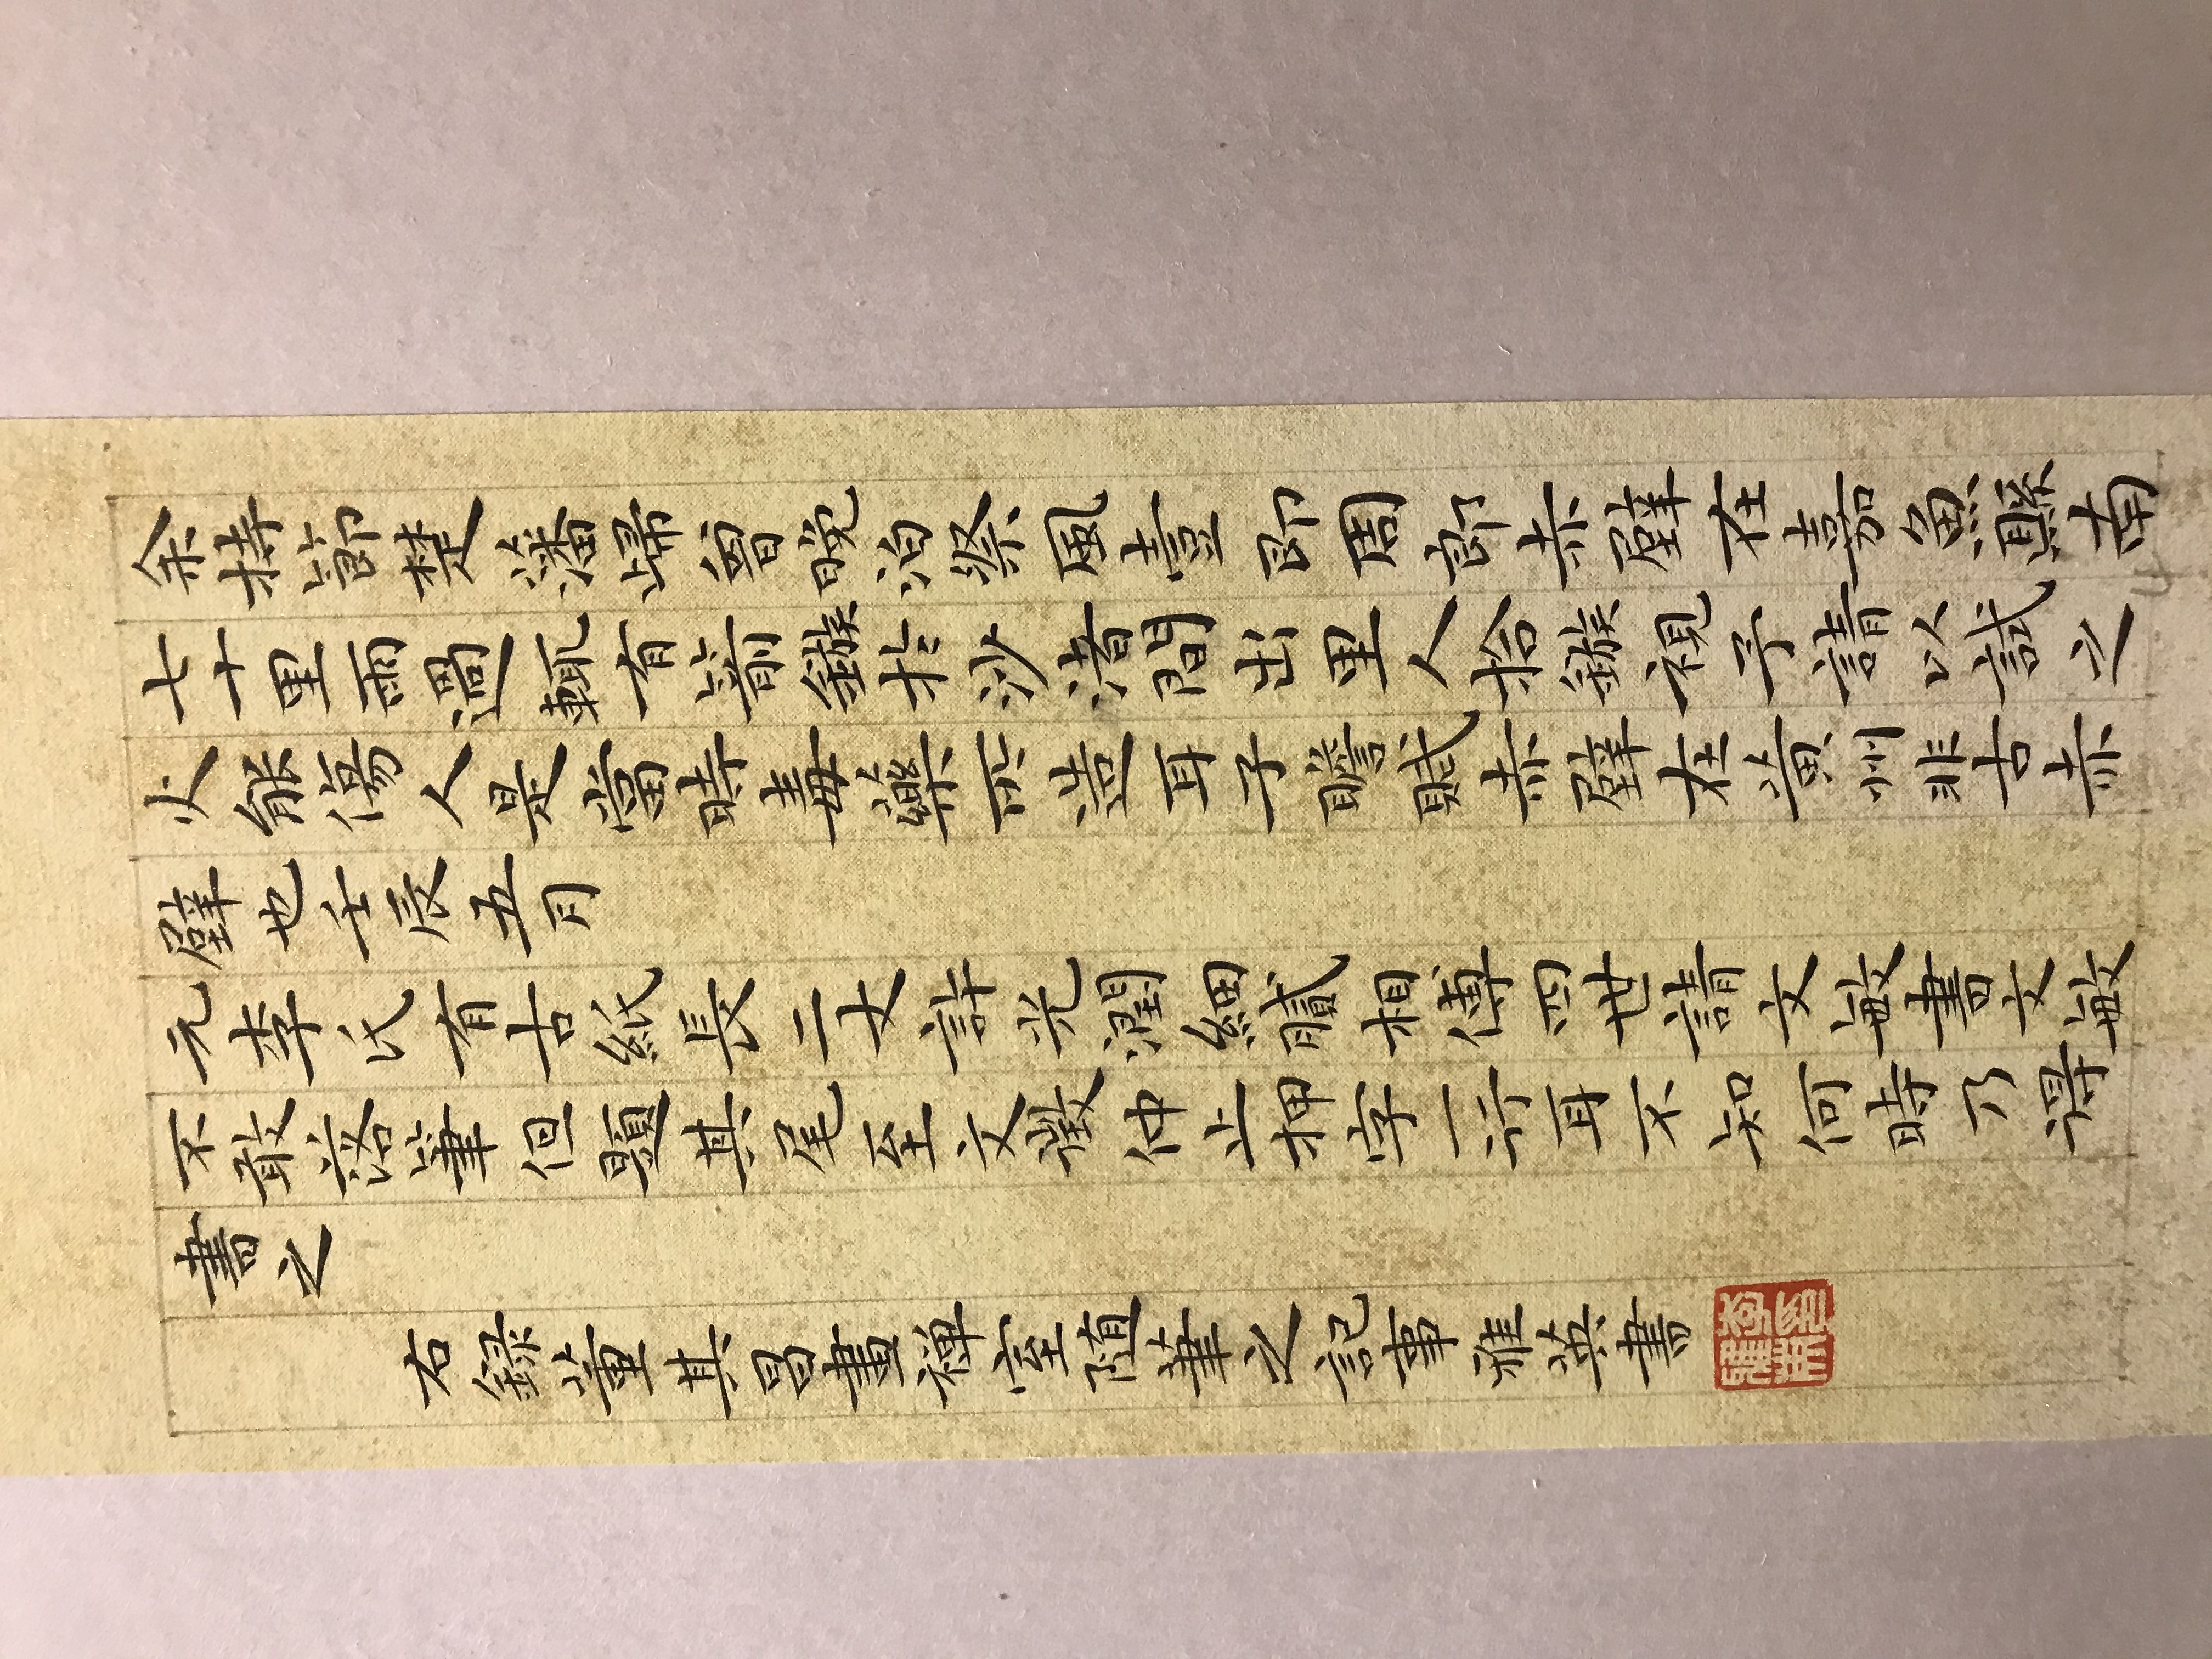 余持節楚藩歸曾晚泊祭風壹即周郎赤壁在嘉魚縣南
七十里雨過輒有箭鏃於沙渚間出里人拾鏃視予請以試之
火能傷人是當時毒藥所造耳子瞻賦赤壁在黃州非古赤
壁也壬辰五月
元李氏有古紙長二丈許光潤細膩相傳四世請文敏書文敏
不敢落筆但題其尾至文徵仲止押字一行耳不知何時乃得
書之
右録董其昌畫禪室随筆之記事雅英書